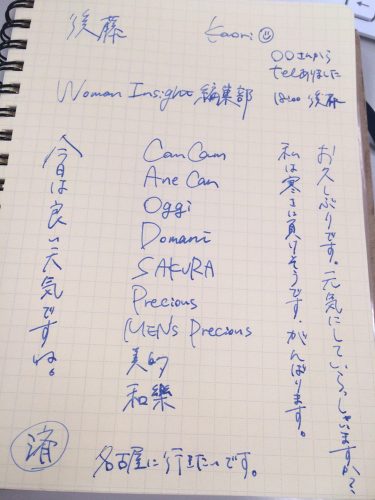 後藤
Kaori
〇〇さんから
telありました
18:00 後藤
Woman Insight 編集部
お久しぶりです。元気にしていらっしゃいますか?
私は寒さに負けそうです。がんばります。
CanCam
AneCan
Oggi
Domani
SAKURA
Precious
MEN's Precious
美的
和樂
今日は良い天気ですね。
済
名古屋に行きたいです。